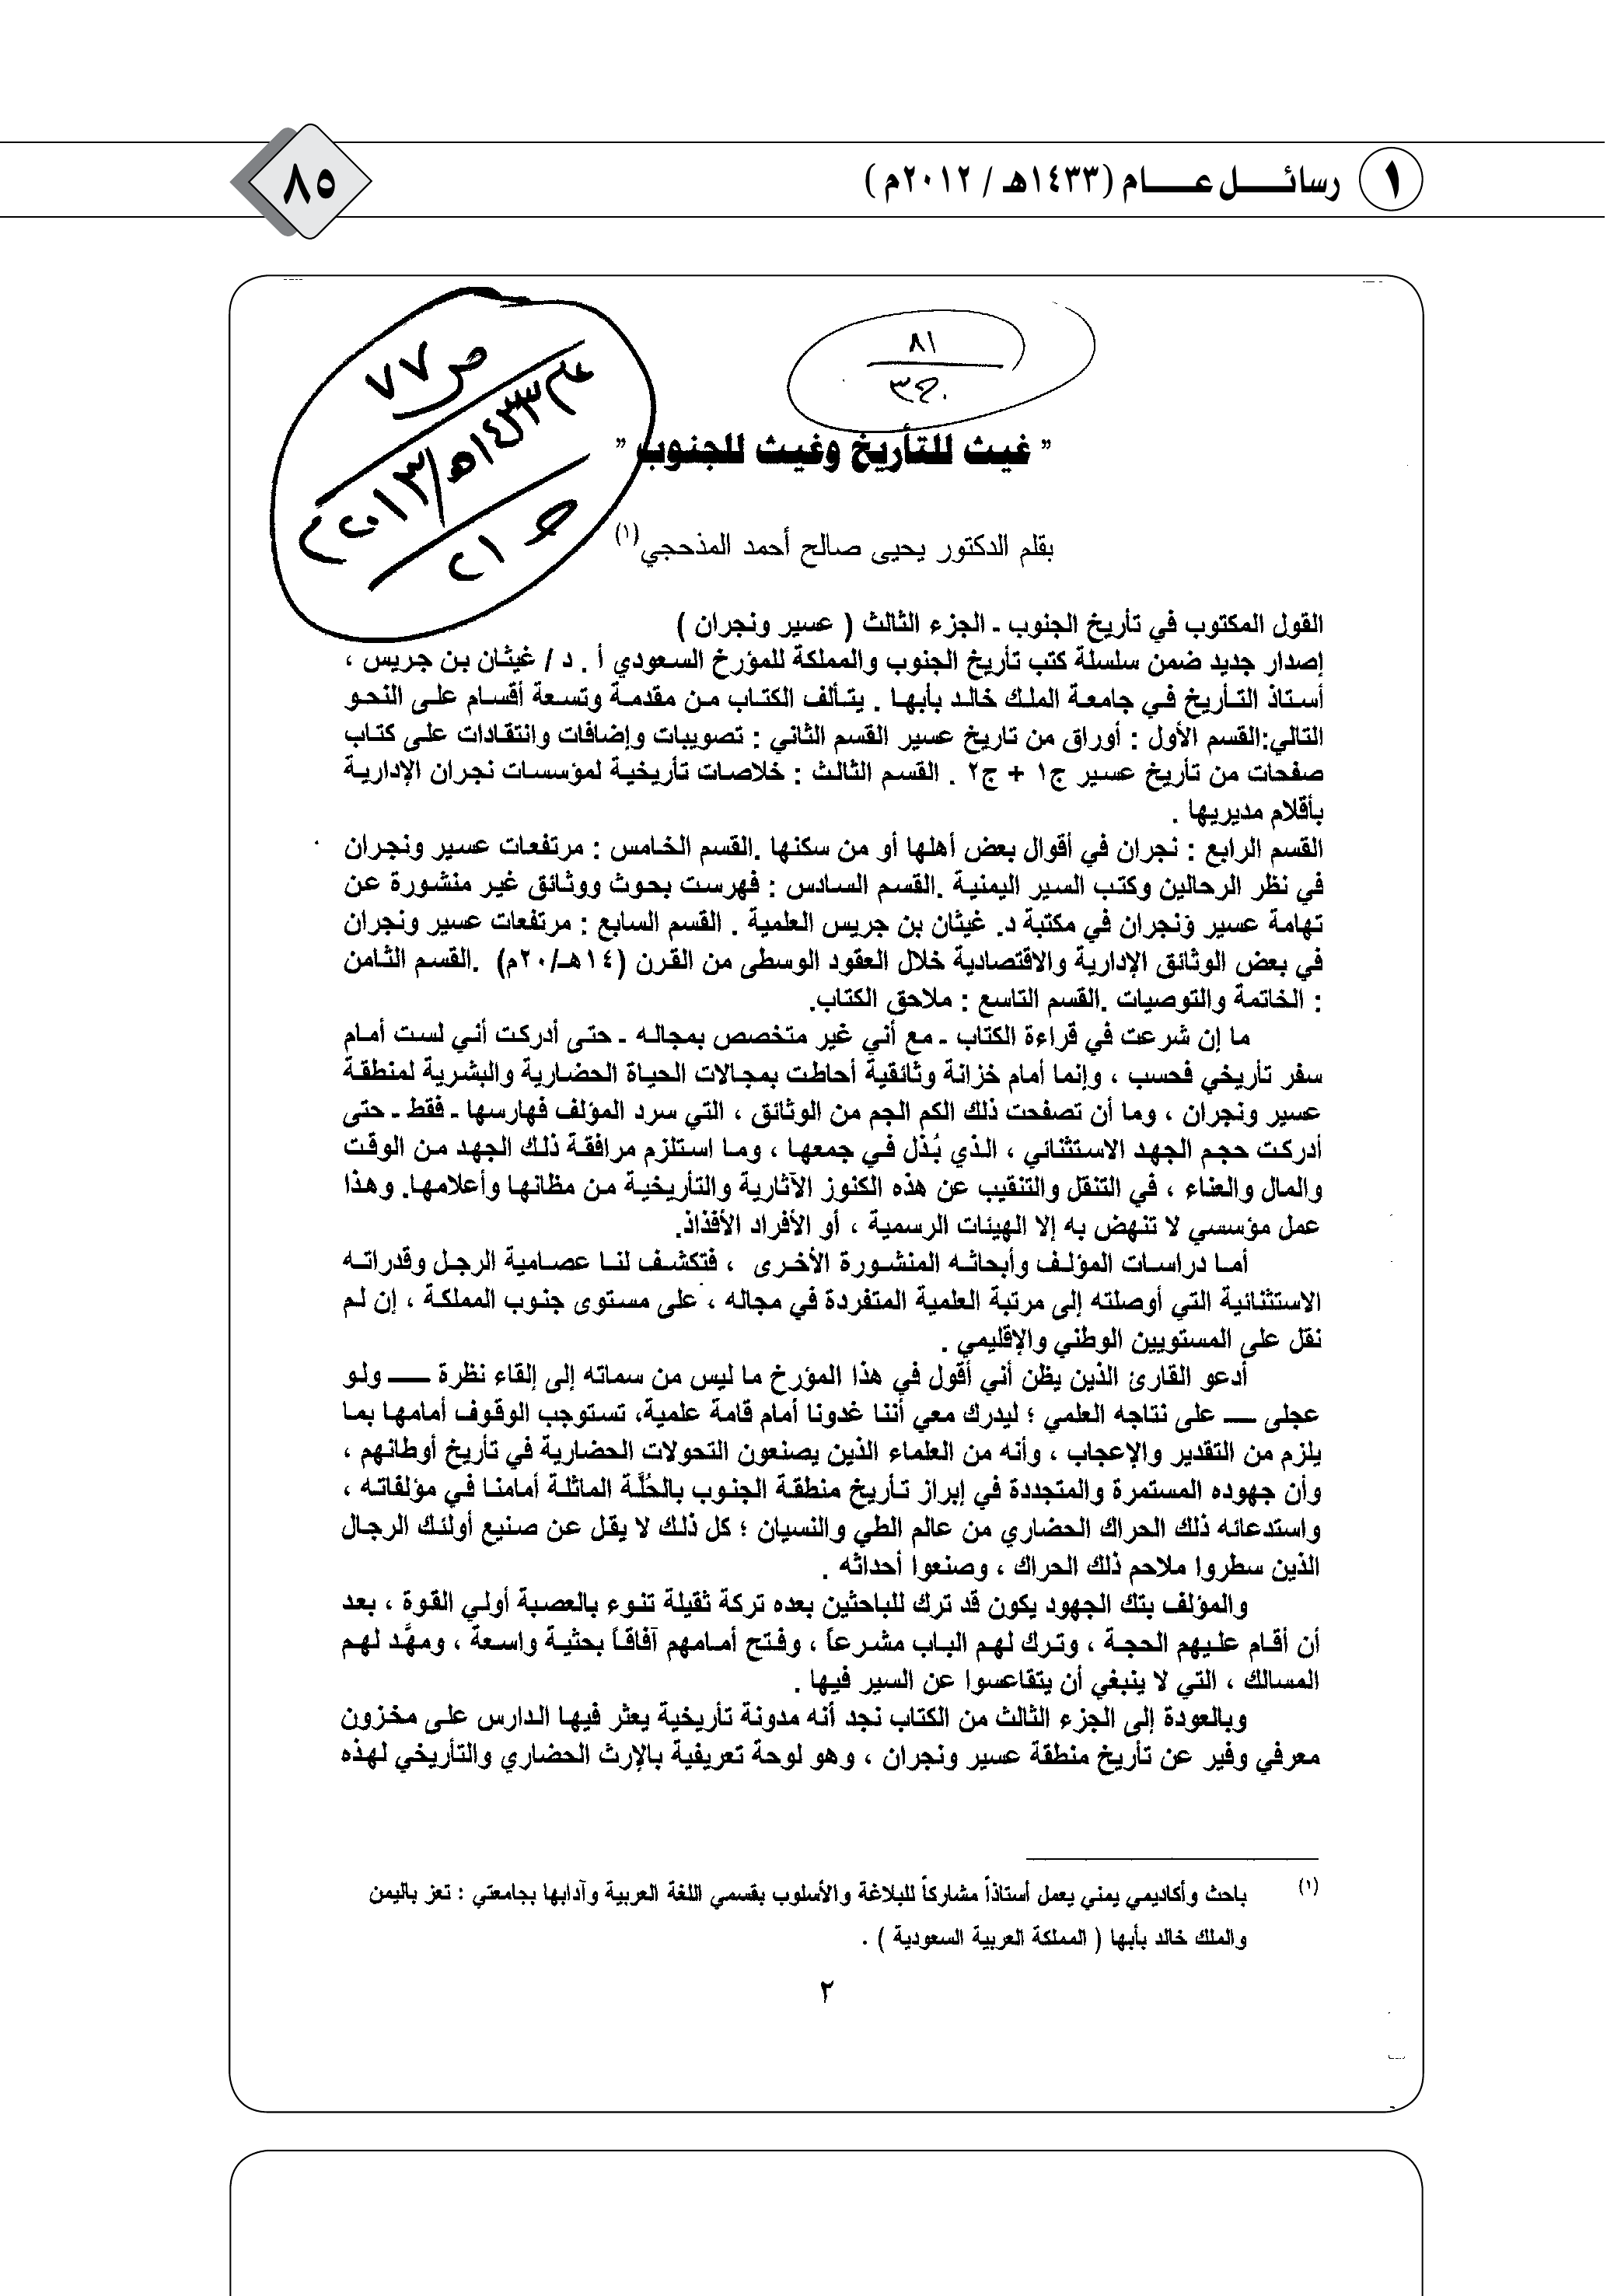 ١ رسائل عام (١٤٣٣هـ / ٢٠١٢م )
٨٥
٨١
ج٣
ص٧٧
عام ١٤٣٣هـ/٢٠١٣م
ج٢١
" غيث للتأريخ وغيث للجنوب "
بقلم الدكتور يحيى صالح أحمد المذحجي(١)
القول المكتوب في تأريخ الجنوب ـ الجزء الثالث ( عسير ونجران )
إصدار جديد ضمن سلسلة كتب تأريخ الجنوب والمملكة للمؤرخ السعودي أ . د / غيثان بن جريس ،
أستاذ التأريخ في جامعة الملك خالد بأبها . يتألف الكتاب من مقدمة وتسعة أقسام على النحو
التالي:القسم الأول : أوراق من تاريخ عسير القسم الثاني : تصويبات وإضافات وانتقادات على كتاب
صفحات من تأريخ عسير ج١ + ج٢ . القسم الثالث : خلاصات تأريخية لمؤسسات نجران الإدارية
بأقلام مديريها .
القسم الرابع : نجران في أقوال بعض أهلها أو من سكنها .القسم الخامس : مرتفعات عسير ونجران
في نظر الرحالين وكتب السير اليمنية .القسم السادس : فهرست بحوث ووثائق غير منشورة عن
تهامة عسير ونجران في مكتبة د. غيثان بن جريس العلمية . القسم السابع : مرتفعات عسير ونجران
في بعض الوثائق الإدارية والاقتصادية خلال العقود الوسطى من القرن (١٤هـ/٢٠م) .القسم الثامن
: الخاتمة والتوصيات .القسم التاسع : ملاحق الكتاب.
ما إن شرعت في قراءة الكتاب ـ مع أني غير متخصص بمجاله ـ حتى أدركت أني لست أمام
سفر تأريخي فحسب ، وإنما أمام خزانة وثائقية أحاطت بمجالات الحياة الحضارية والبشرية لمنطقة
عسير ونجران ، وما أن تصفحت ذلك الكم الجم من الوثائق ، التي سرد المؤلف فهارسها ـ فقط ـ حتى
أدركت حجم الجهد الاستثنائي ، الذي بُذل في جمعها ، وما استلزم مرافقة ذلك الجهد من الوقت
والمال والعناء ، في التنقل والتنقيب عن هذه الكنوز الآثارية والتأريخية من مظانها وأعلامها. وهذا
عمل مؤسسي لا تنهض به إلا الهيئات الرسمية ، أو الأفراد الأفذاذ.
أما دراسات المؤلف وأبحاثه المنشورة الأخرى ، فتكشف لنا عصامية الرجل وقدراته
الاستثنائية التي أوصلته إلى مرتبة العلمية المتفردة في مجاله ، على مستوى جنوب المملكة ، إن لم
نقل على المستويين الوطني والإقليمي .
أدعو القارئ الذين يظن أني أقول في هذا المؤرخ ما ليس من سماته إلى إلقاء نظرة ـــ ولو
عجلى ـــ على نتاجه العلمي ؛ ليدرك معي أننا غدونا أمام قامة علمية، تستوجب الوقوف أمامها بما
يلزم من التقدير والإعجاب ، وأنه من العلماء الذين يصنعون التحولات الحضارية في تأريخ أوطانهم ،
وأن جهوده المستمرة والمتجددة في إبراز تأريخ منطقة الجنوب بالحُلَّة الماثلة أمامنا في مؤلفاته ،
واستدعائه ذلك الحراك الحضاري من عالم الطي والنسيان ؛ كل ذلك لا يقل عن صنيع أولئك الرجال
الذين سطروا ملاحم ذلك الحراك ، وصنعوا أحداثه .
والمؤلف بتك الجهود يكون قد ترك للباحثين بعده تركة ثقيلة تنوء بالعصبة أولي القوة ، بعد
أن أقام عليهم الحجة ، وترك لهم الباب مشرعاً ، وفتح أمامهم آفاقاً بحثية واسعة ، ومهَّد لهم
المسالك ، التي لا ينبغي أن يتقاعسوا عن السير فيها .
وبالعودة إلى الجزء الثالث من الكتاب نجد أنه مدونة تأريخية يعثر فيها الدارس على مخزون
معرفي وفير عن تأريخ منطقة عسير ونجران ، وهو لوحة تعريفية بالإرث الحضاري والتأريخي لهذه
(١) باحث وأكاديمي يمني يعمل أستاذاً مشاركاً للبلاغة والأسلوب بقسمي اللغة العربية وآدابها بجامعتي : تعز باليمن
والملك خالد بأبها ( المملكة العربية السعودية ) .
٢